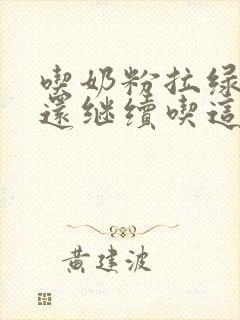 喫奶粉拉绿
還继續喫這
黄建波